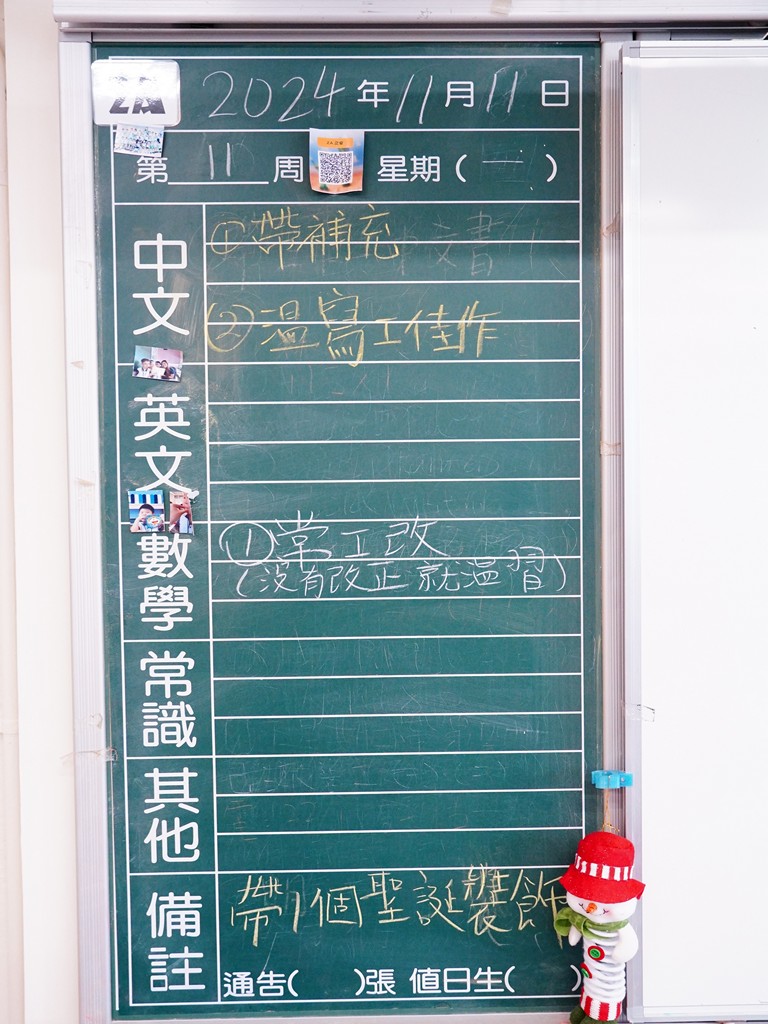 2A
2024年11月11日
第11周 星期(一)
中文
①帶補充
②溫寫工佳作
英文
數學
①常工改
(沒有改正就溫習)
常識
其他
備註
帶1個聖誕裝飾
通告( )張 值日生( )